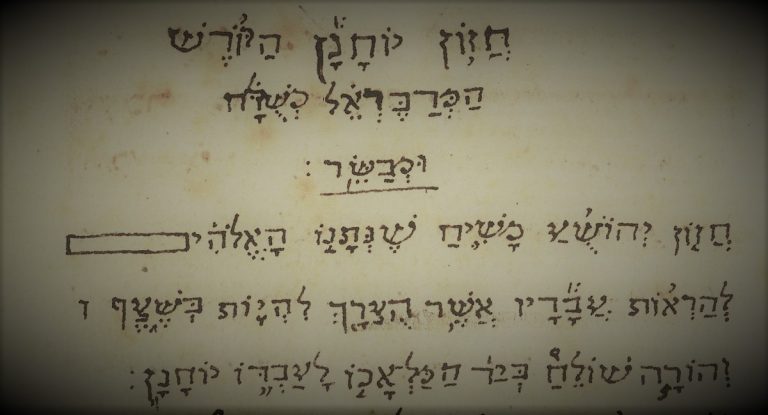 חֲזוֹן יוֹחָנָן הַקּוֹדֶשׁ
הַמְּדַבֶּר אֶל
וּמְבַשֵּׂר :
חֲזוֹן יְהוֹשֻׁעַ מָשִׁיחַ שֶׁנְּתָנוֹ הָאֱלֹהִי
לְהַרְאוֹת עֲבָדָיו אֲשֶׁר הֻצָרָךְ לִהְיוֹת בְּשֶׁצֶף ו
וְהוֹרָה שׁוֹלֵחַ בְּיַד הַמַּלְאָכוֹ לָעַבְדּוֹ יוֹחָנָן :